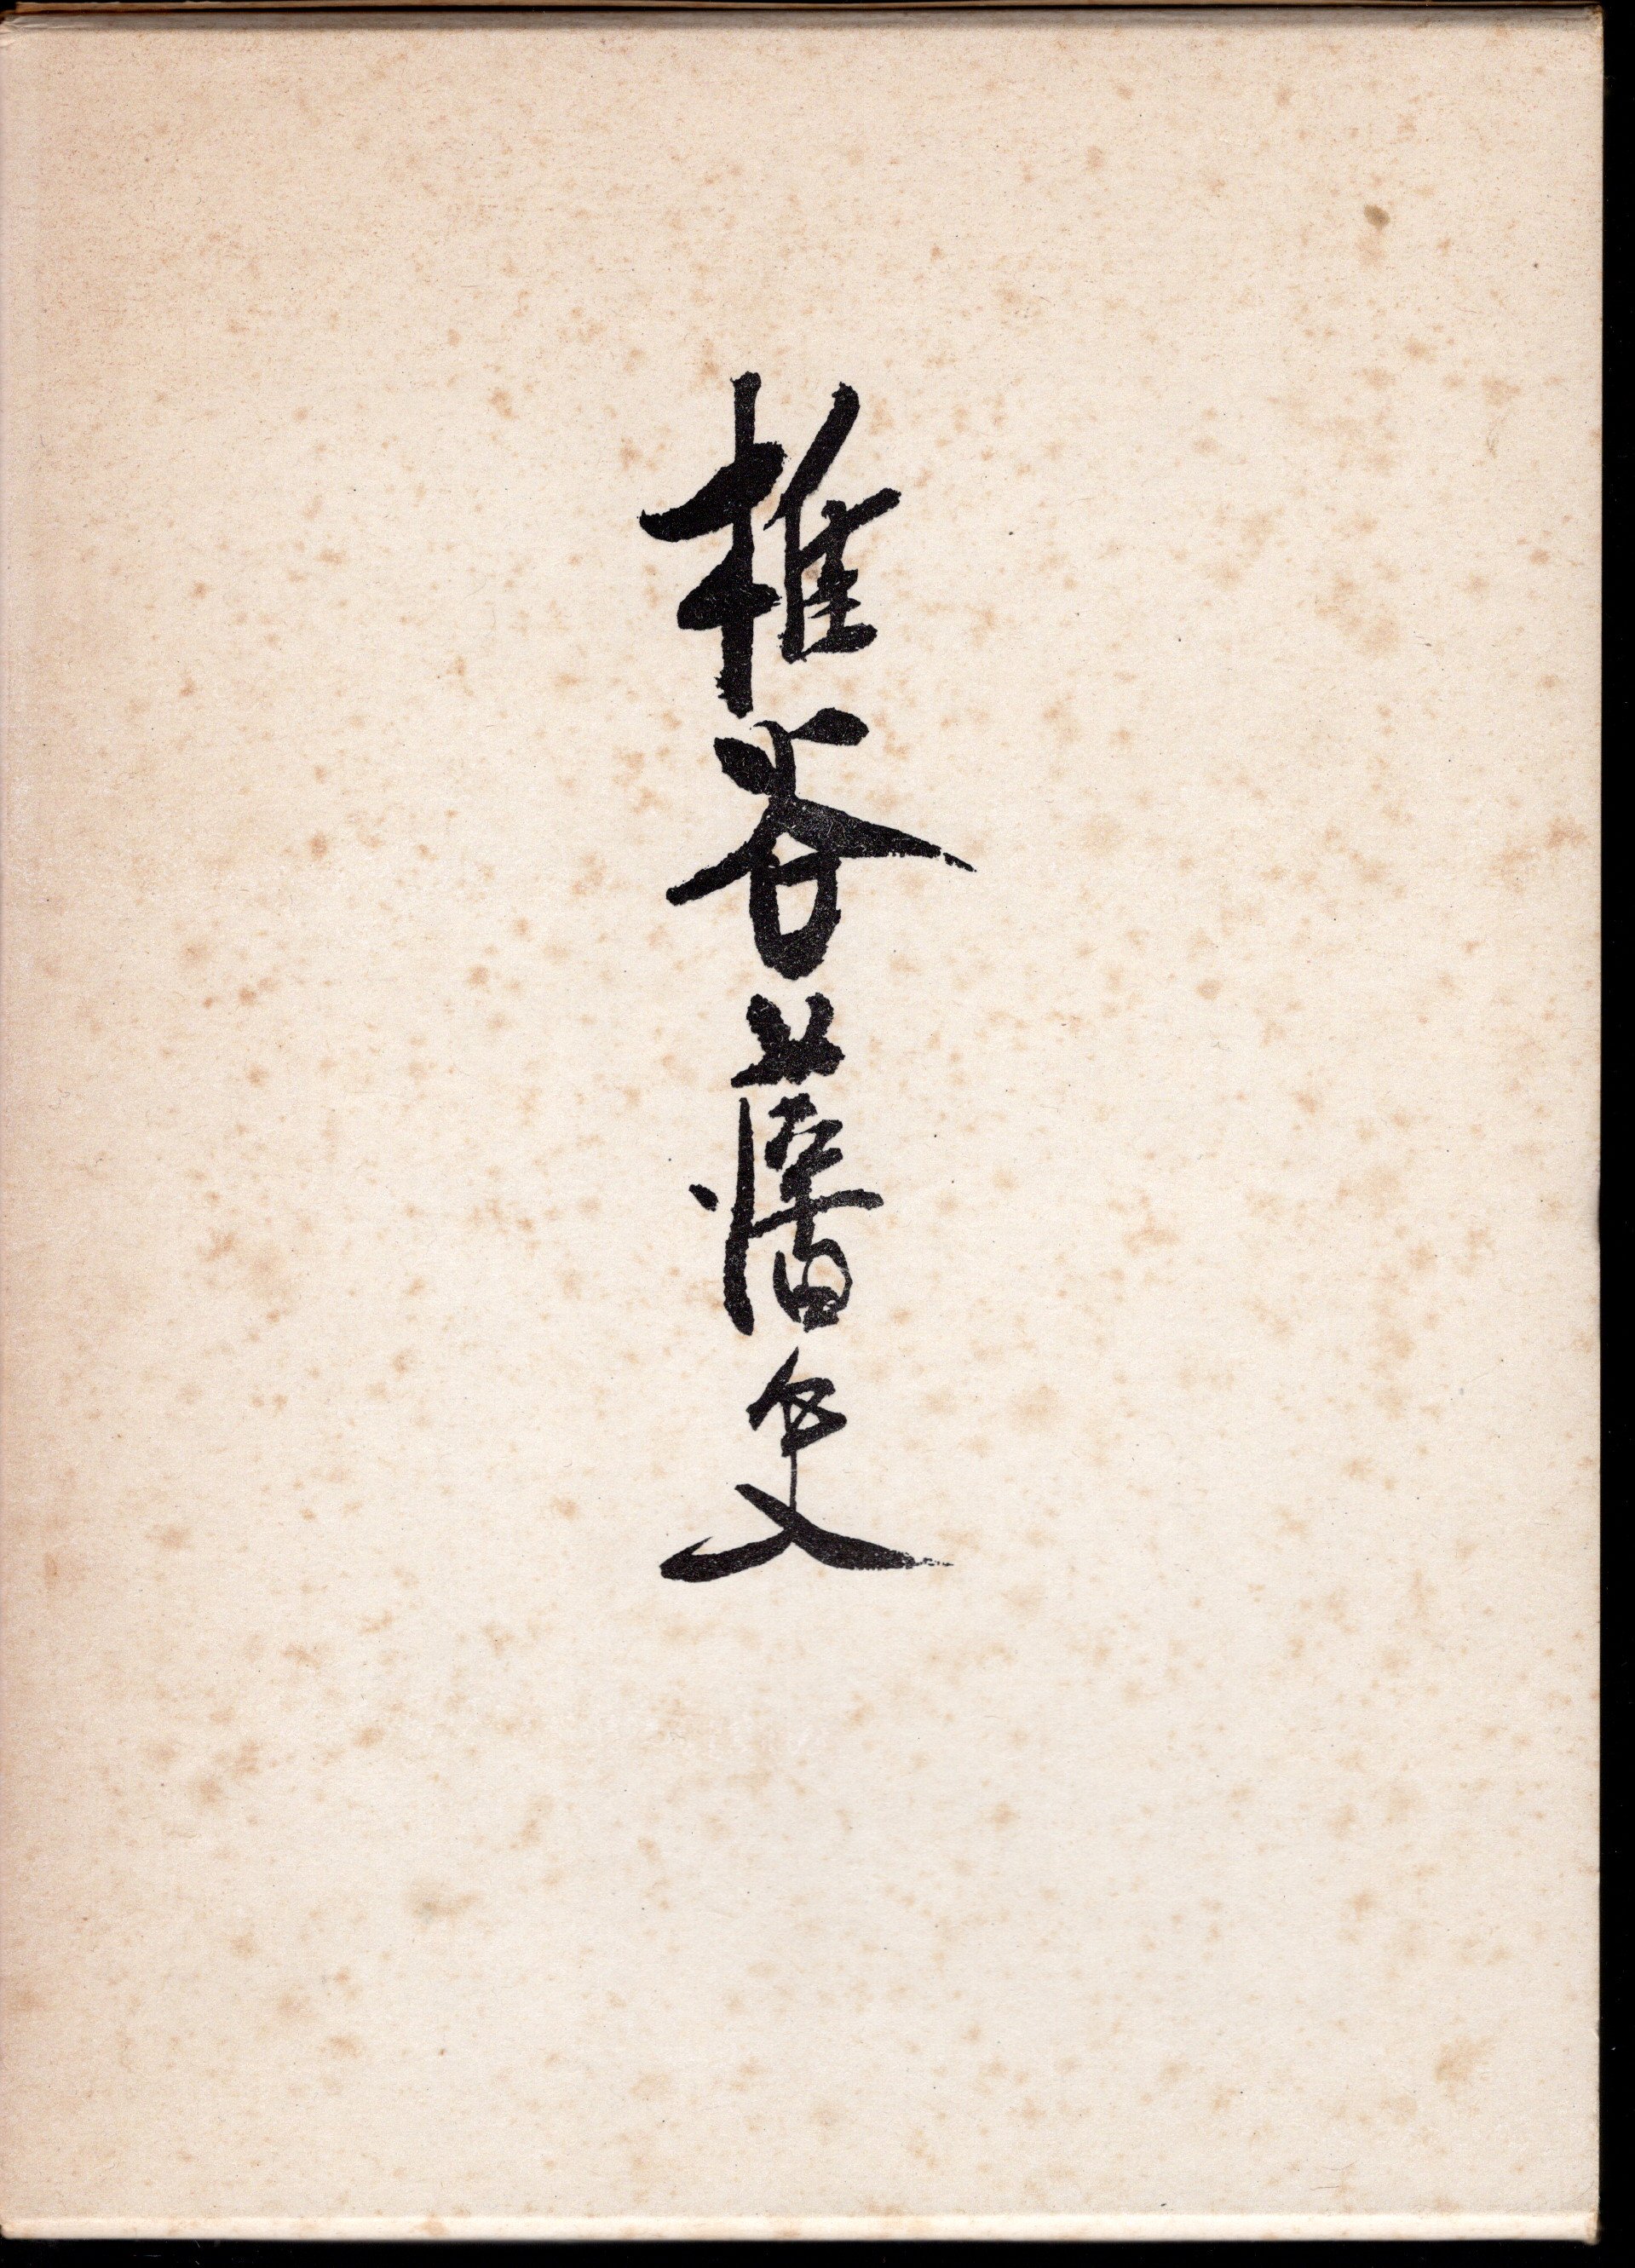 椎谷藩史